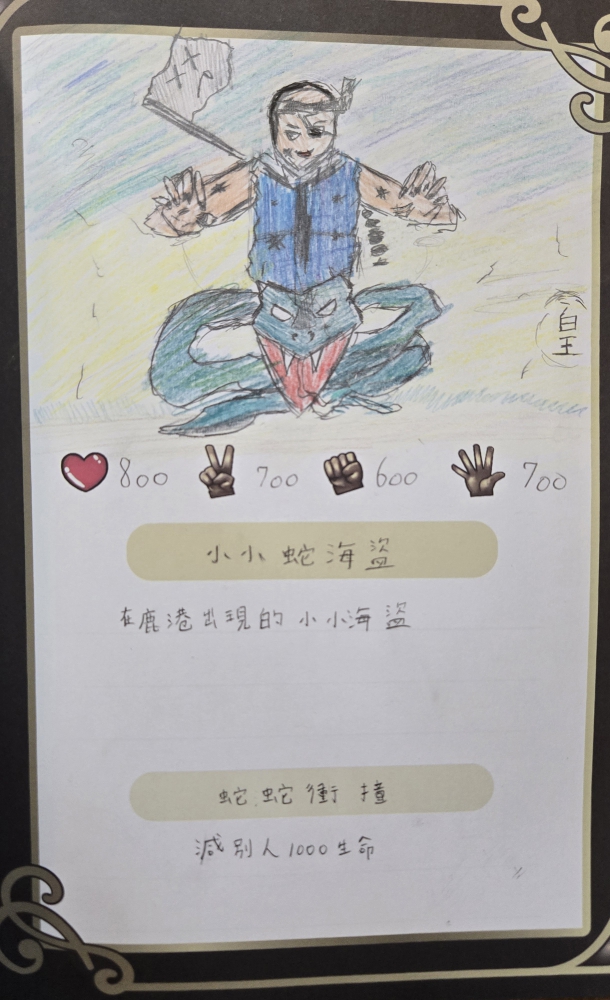 皇
800 700 600 700
小小蛇海盜
在鹿港出現的小小海盜
蛇蛇衝撞
減別人1000生命